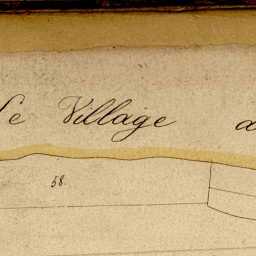 Le Village
58.